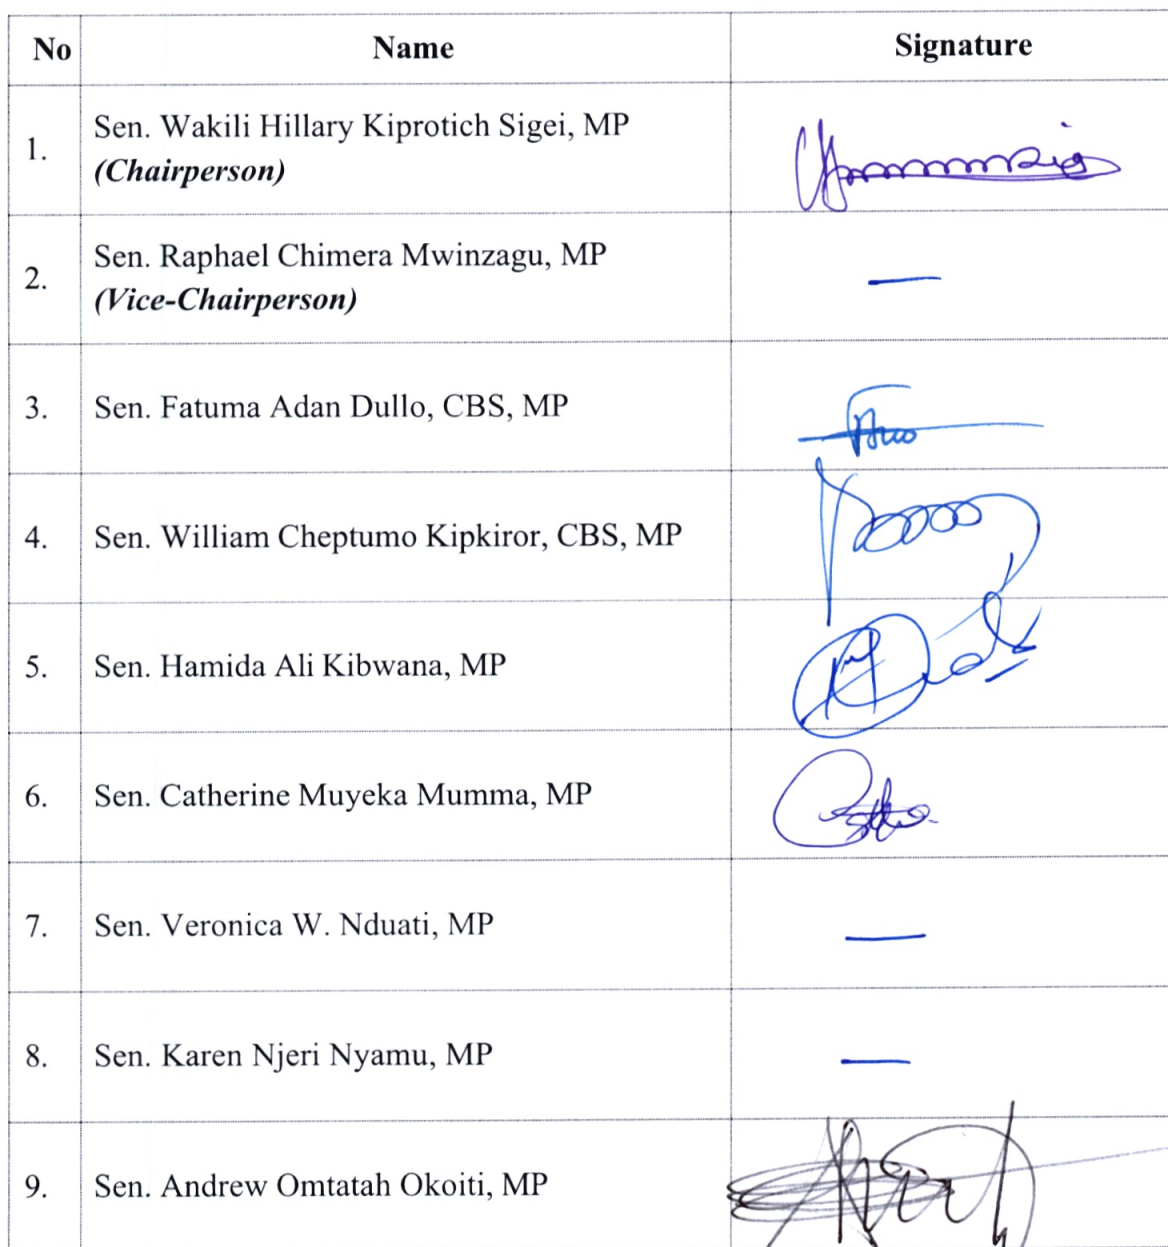 No Name Signature
1. Sen. Wakili Hillary Kiprotich Sigei, MP
(Chairperson)
2. Sen. Raphael Chimera Mwinzagu, MP
(Vice-Chairperson)
—
3. Sen. Fatuma Adan Dullo, CBS, MP
4. Sen. William Cheptumo Kipkiror, CBS, MP
5. Sen. Hamida Ali Kibwana, MP
6. Sen. Catherine Muyeka Mumma, MP
7. Sen. Veronica W. Nduati, MP —
8. Sen. Karen Njeri Nyamu, MP —
9. Sen. Andrew Omtatah Okoiti, MP